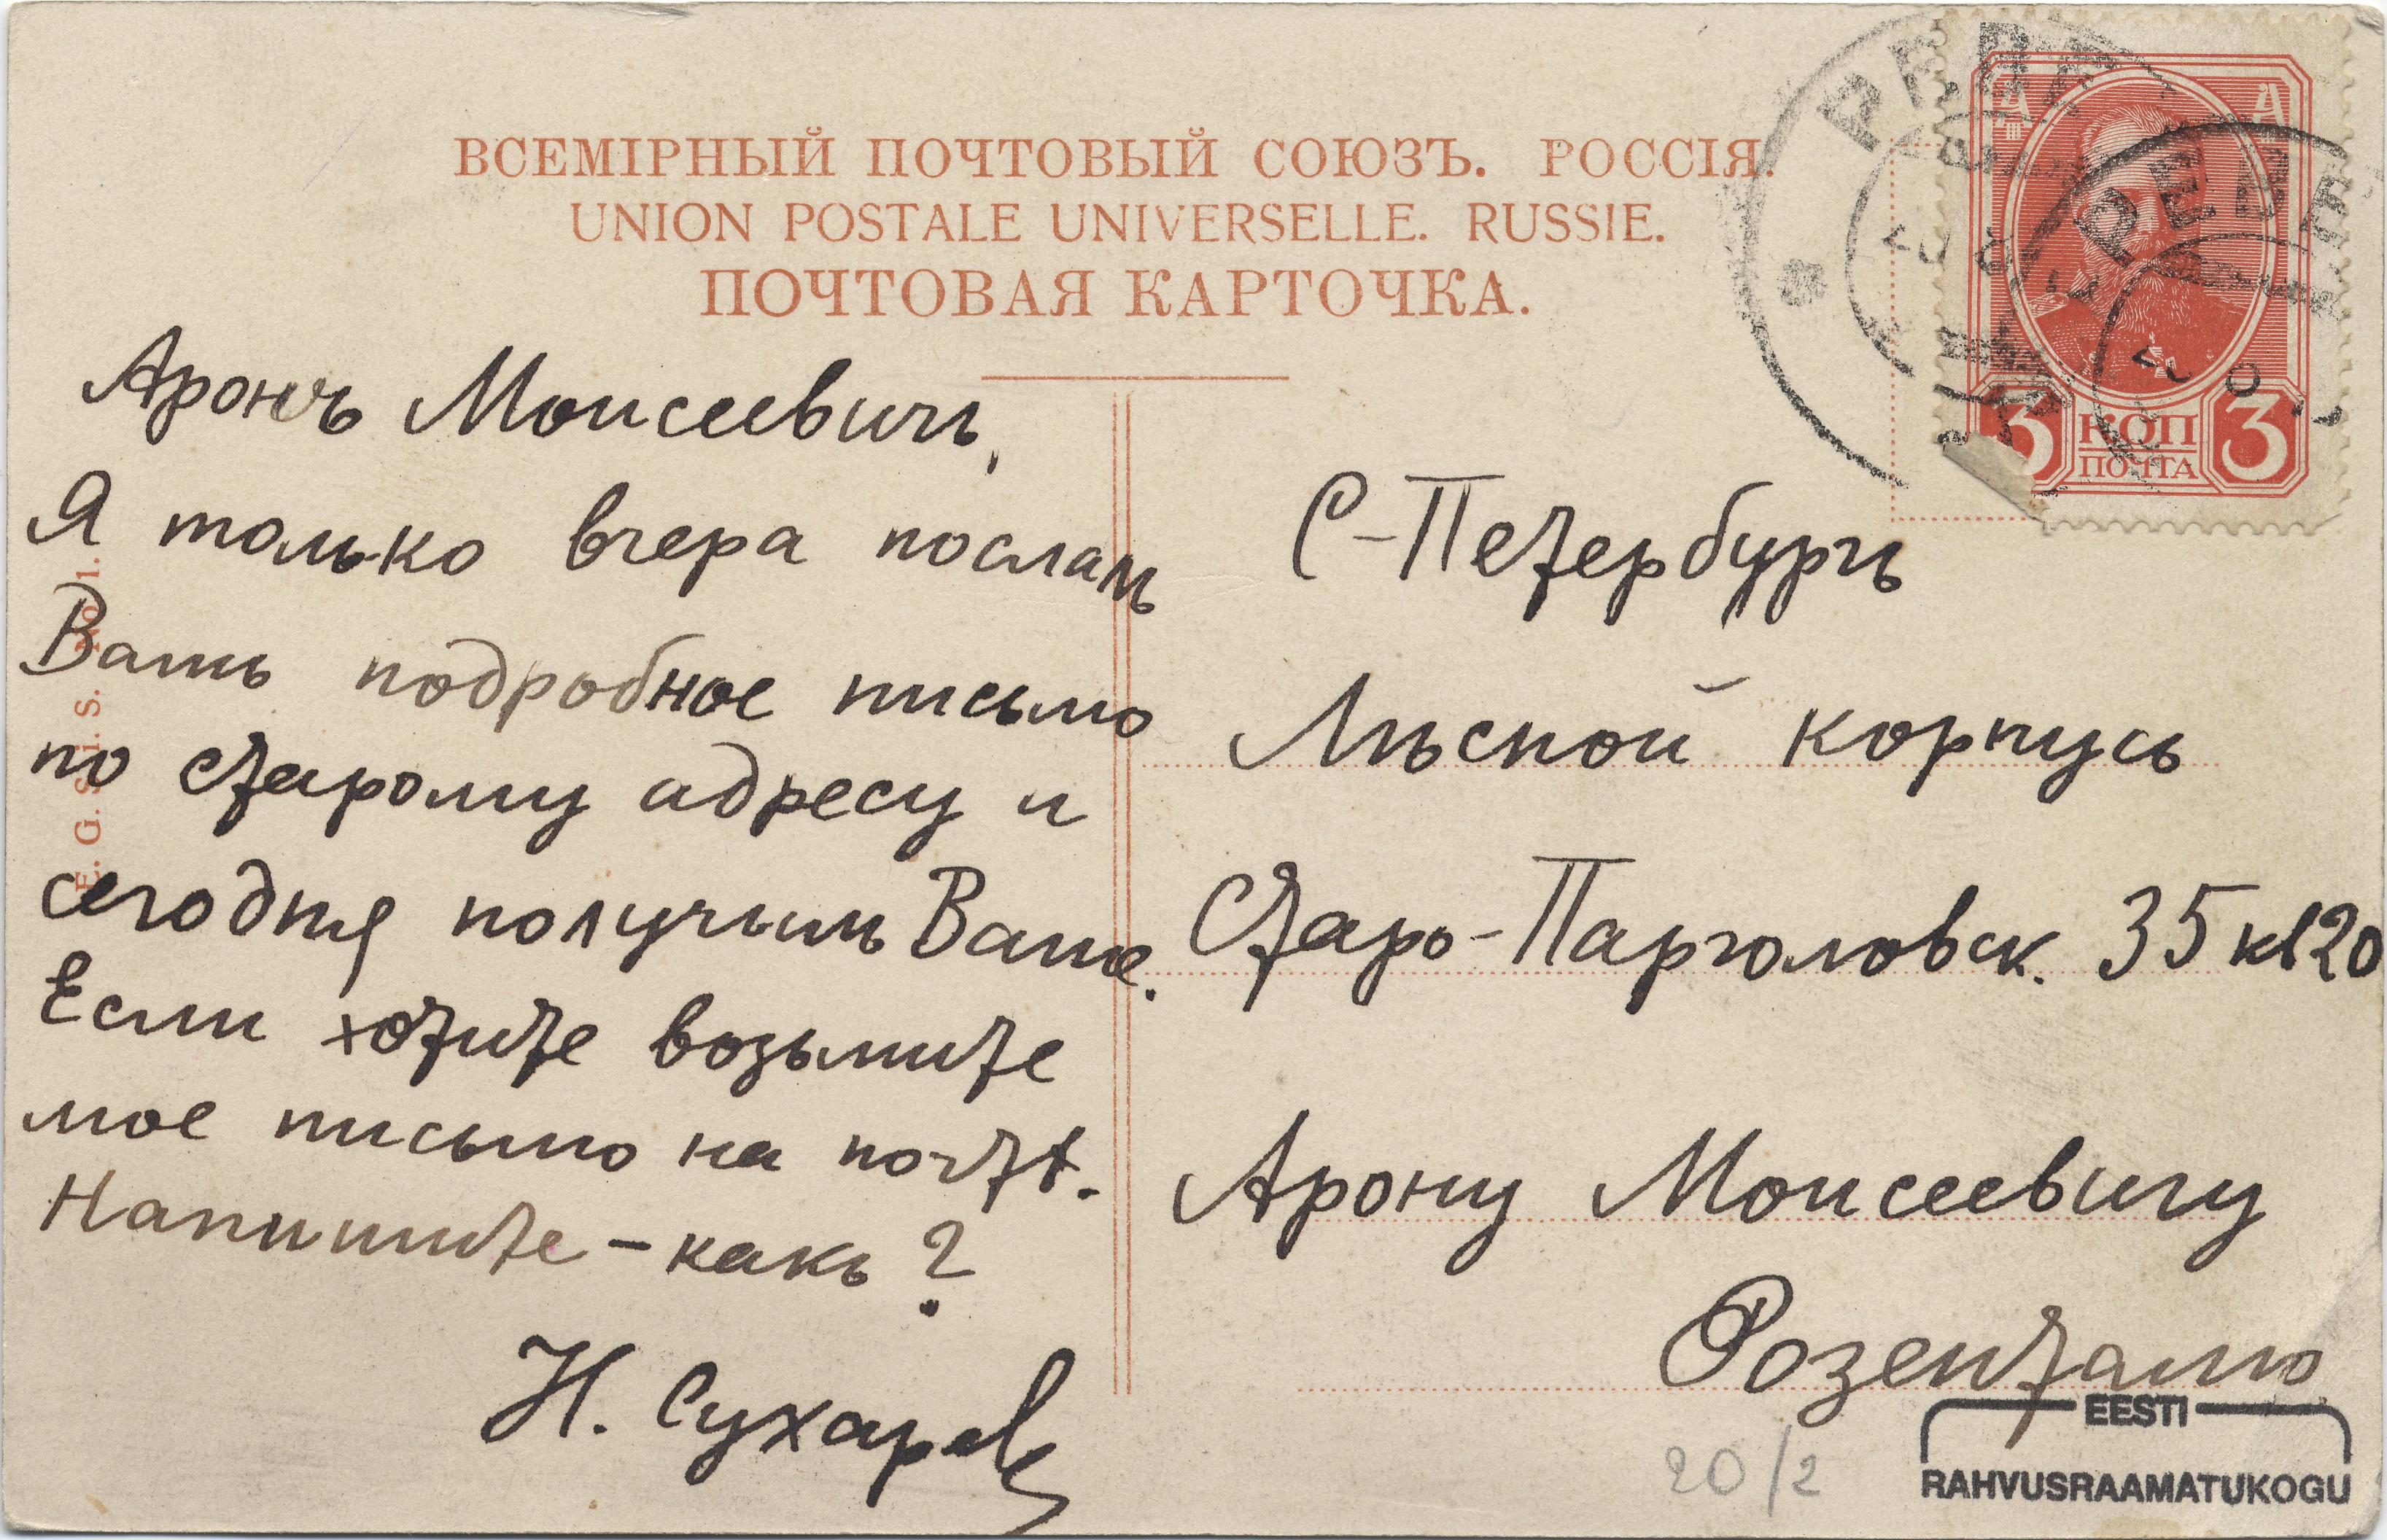 ВСЕМІРНЫЙ ПОЧТОВЫЙ СОЮЗЪ. РОССІЯ.
UNION POSTALE UNIVERSELLE. RUSSIE.
ПОЧТОВАЯ КАРТОЧКА.
Аронъ Моисеевичъ,
Я только вчера послалъ
Вамъ подробное письмо
по старому адресу и
сегодня получилъ Ваше.
Если хотите возьмите
мое письмо на почтѣ.
Напишите – какъ?
Н. Сухарев
E. G. S. i. S. No 1.
3 КОП 3
ПОЧТА
РЕВЕЛ
РЕВЕЛ
С-Петербургъ
Лѣсной корпусъ
Старо-Парголовск. 35 кв 20
Арону Моисеевичу
Розенталю
20/2
EESTI
RAHVUSRAAMATUKOGU